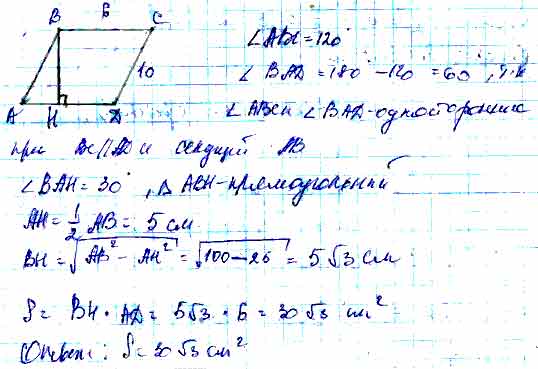 B 6 C
10
A H D
∠ABC = 120°
∠BAD = 180 − 120 = 60°, т.к
∠ABC и ∠BAD - односторонние
при BC||AD и секущей AB
∠BAH = 30°, Δ ABH - прямоугольный
AH = 1/2 AB = 5 см
BH = √AB² − AH² = √100 − 25 = 5√3 см
S = BH · AD = 5√3 · 6 = 30√3 см²
Ответ: S = 30√3 см²